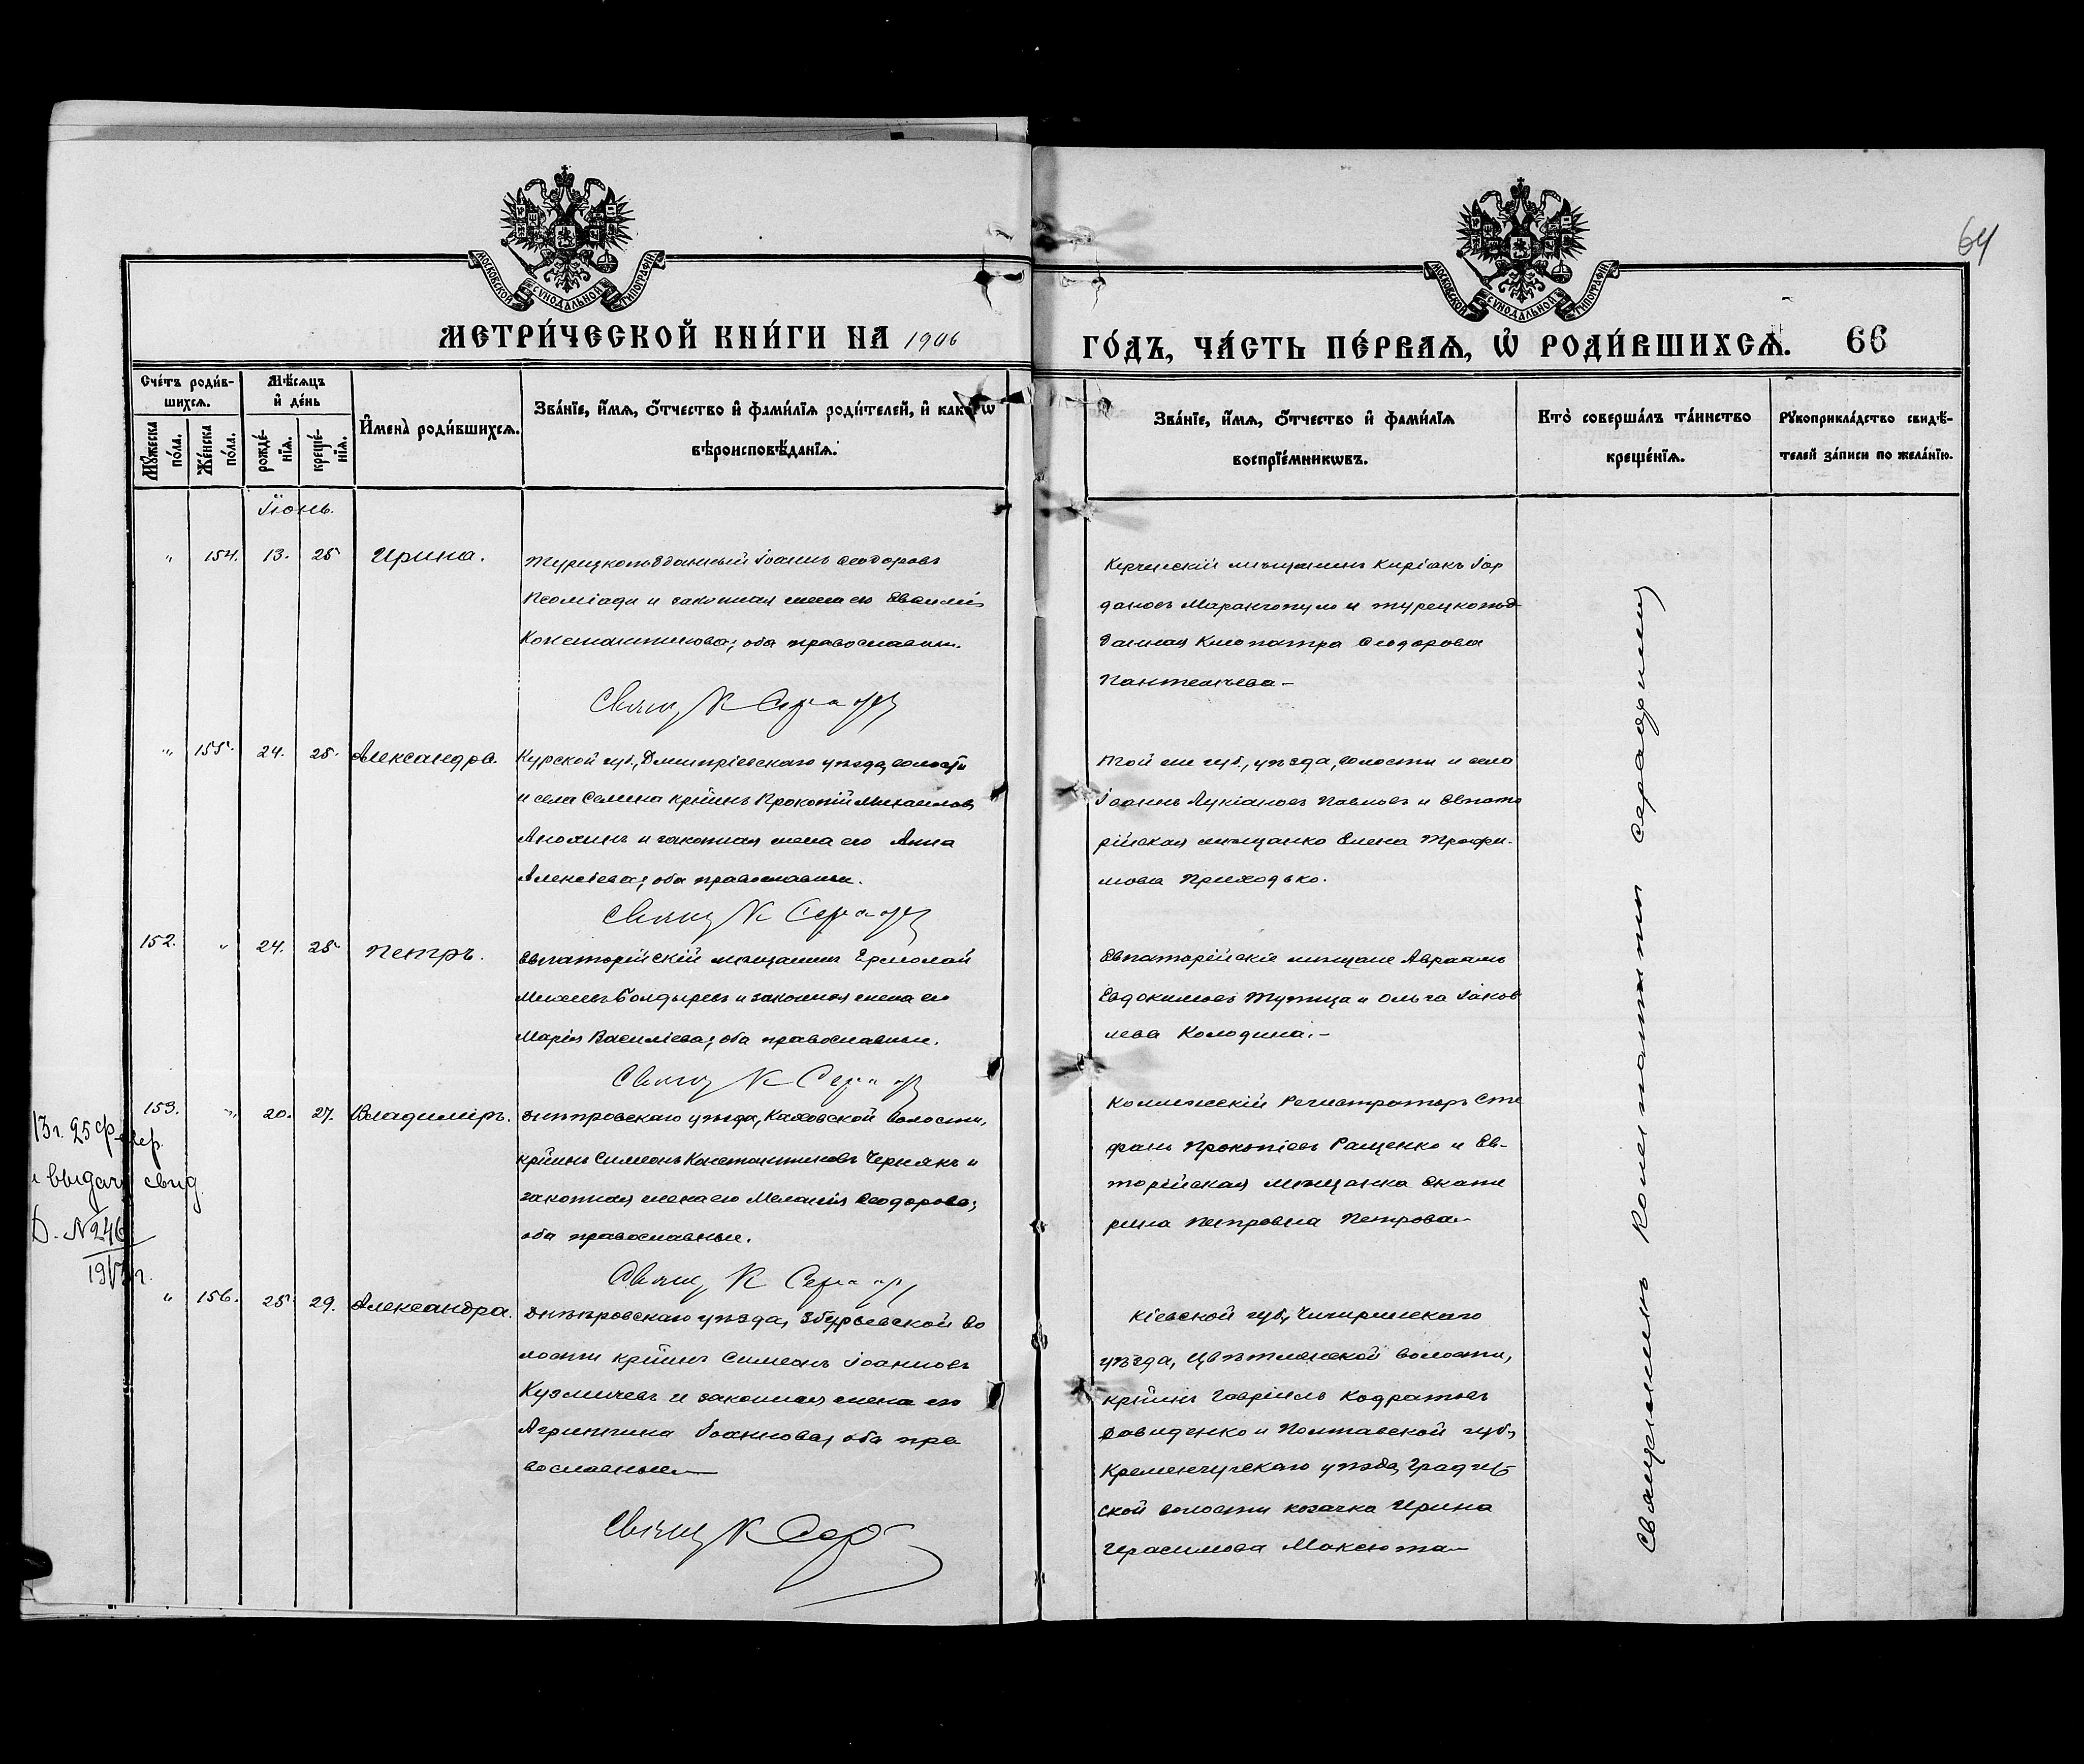 64
МОСКОВСКОЙ СУНОДАЛЬНОЙ ТИПОГРАФІИ
МОСКОВСКОЙ СУНОДАЛЬНОЙ ТИПОГРАФІИ
МЕТРИ́ЧЕСКОЙ КНИ́ГИ НА 1906
ГО́ДЪ, ЧА́СТЬ ПЕ́РВАѦ, Ѡ҆ РОДИ́ВШИХСѦ. 66
Сче́тъ роди́в-
шихсѧ.
Мꙋ́жеска по́ла.
Же́нска по́ла.
Мѣ́сѧцъ
и҆ де́нь
рожде́-
нїѧ.
креще́-
нїѧ.
И҆мена̀ роди́вшихсѧ.
Зва́нїе, и҆́мѧ, ѻ҆́тчество и҆ фами́лїѧ роди́телей, и҆ како́гѡ
вѣроисповѣ́данїѧ.
Зва́нїе, и҆́мѧ, ѻ҆́тчество и҆ фами́лїѧ
воспрїе́мникѡвъ.
Кто̀ соверша́лъ та́инство
креще́нїѧ.
Рꙋкоприкла́дство свидѣ́-
телей за́писи по жела́нїю.
Іюнь.
" 154. 13. 25 Ирина.
Турецкоподданный Іоаннъ Ѳеодоровъ
и законная жена его
Константинова; оба православн.
Свящ К
Керченскій мѣщанинъ Киріакъ Іор
дановъ Маранчопуло и турецкопод
данная Клеопатра Ѳеодорова
Пантелѣева –
" 155. 24. 25. Александра.
Курской губ., Дмитріевскаго уѣзда, волости
и села Селина крӥнъ Прокопій Михаиловъ
Анохинъ и законная жена его Анна
Алексіева; оба православные.
Свящ К
Той же губ., уѣзда, волости и села
Іоаннъ Лукіановъ Павловъ и Евпато
рійская мѣщанка Елена Трофи-
мова Приходько.
152. " 24. 25 Петръ.
Евпаторійскій мѣщанинъ Ермолай
Болдыревъ и законная жена его
Марія Василіева; оба православные.
Свящ К
Евпаторійскіе мѣщане Авраамъ
Евдокимовъ и Ольга Іаков
лева Колодина. –
153. " 20. 27. Владимиръ.
Днѣпровскаго уѣзда, Каховской волости,
крӥнъ Симеонъ Константиновъ Чернякъ и
законная жена его Меланія Ѳеодорова;
оба православные.
Свящ К
Коллежскій Регистраторъ Сте
фанъ Прокопіевъ Ращенко и Ев-
торійская мѣщанка Екате
рина Петровна Петрова –
25 фев.
выдачу свид.
№ 246
1913 г.
" 156. 25 29. Александра.
Днѣпровскаго уѣзда, Збурьевской во
лости крӥнъ Симеонъ Іоанновъ
Кузмичевъ и законная жена его
Агриппина Іоаннова, оба пра
вославные –
Свящ К
Кіевской губ. Чигиринскаго
уѣзда, Цвѣтненской волости,
крӥнъ Гавріилъ Кодратовъ
Давиденко и Полтавской губ.,
Кременчугскаго уѣзда, Градиж
ской волости козачка Ирина
Герасимова Максюта –
Священникъ